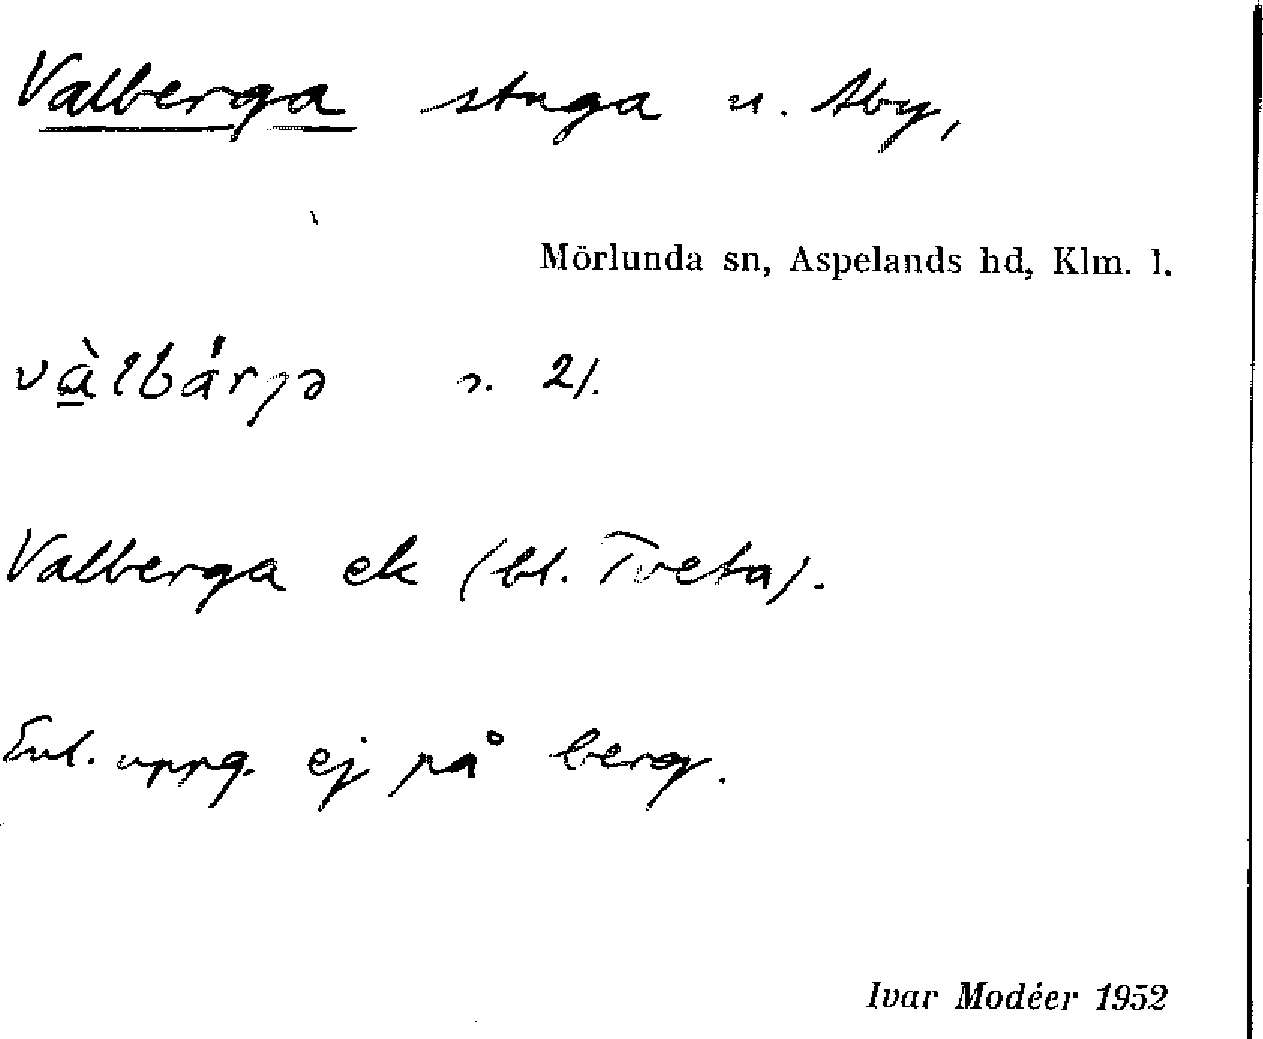 Valberga stuga u. Åby,
Mörlunda sn, Aspelands hd, Klm. l.
và̱lbárgə s. 21.
Valberga ek (bl. Tveta).
Enl. uppg. ej på berg.
Ivar Modéer 1952